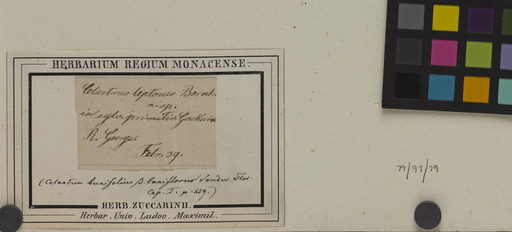 HERBARIUM REGIUM MONACENSE.
Celastrus leptopus Bernh.
n. sp.
in sylvis
R. George.
Febr. 39.
(Celastrus buxifolius β laxiflorus Sonder. Flor.
Cap. I. p. 459.)
HERB. ZUCCARINII.
Herbar. Univ. Ludov. Maximil.